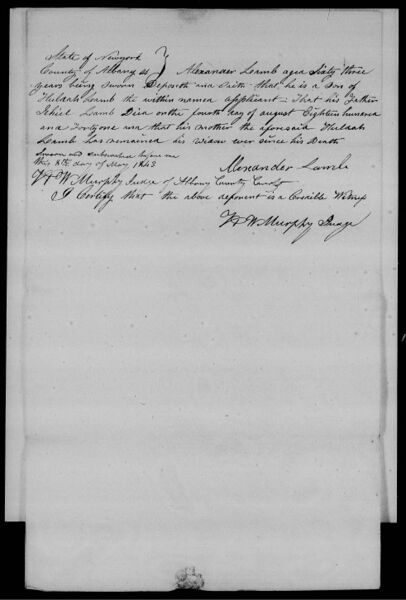 State of Newyork
County of Albany ss } Alexander Lamb aged Sixty three
years being Sworn Deposeth and Saith that he is a Son of
Huldah Lamb the within named applicant – That his Father
Lamb Died on the fourth day of august Eighteen hundred
and Fortyone and that his mother the aforesaid Huldah
Lamb has remained his Widow ever since his Death
Sworn and subscribed before me
this 8th day of May 1843
Alexander Lamb
Murphy Judge of Albany County Courts
I Certify that the above deponent is a Credible Witness
Murphy Judge